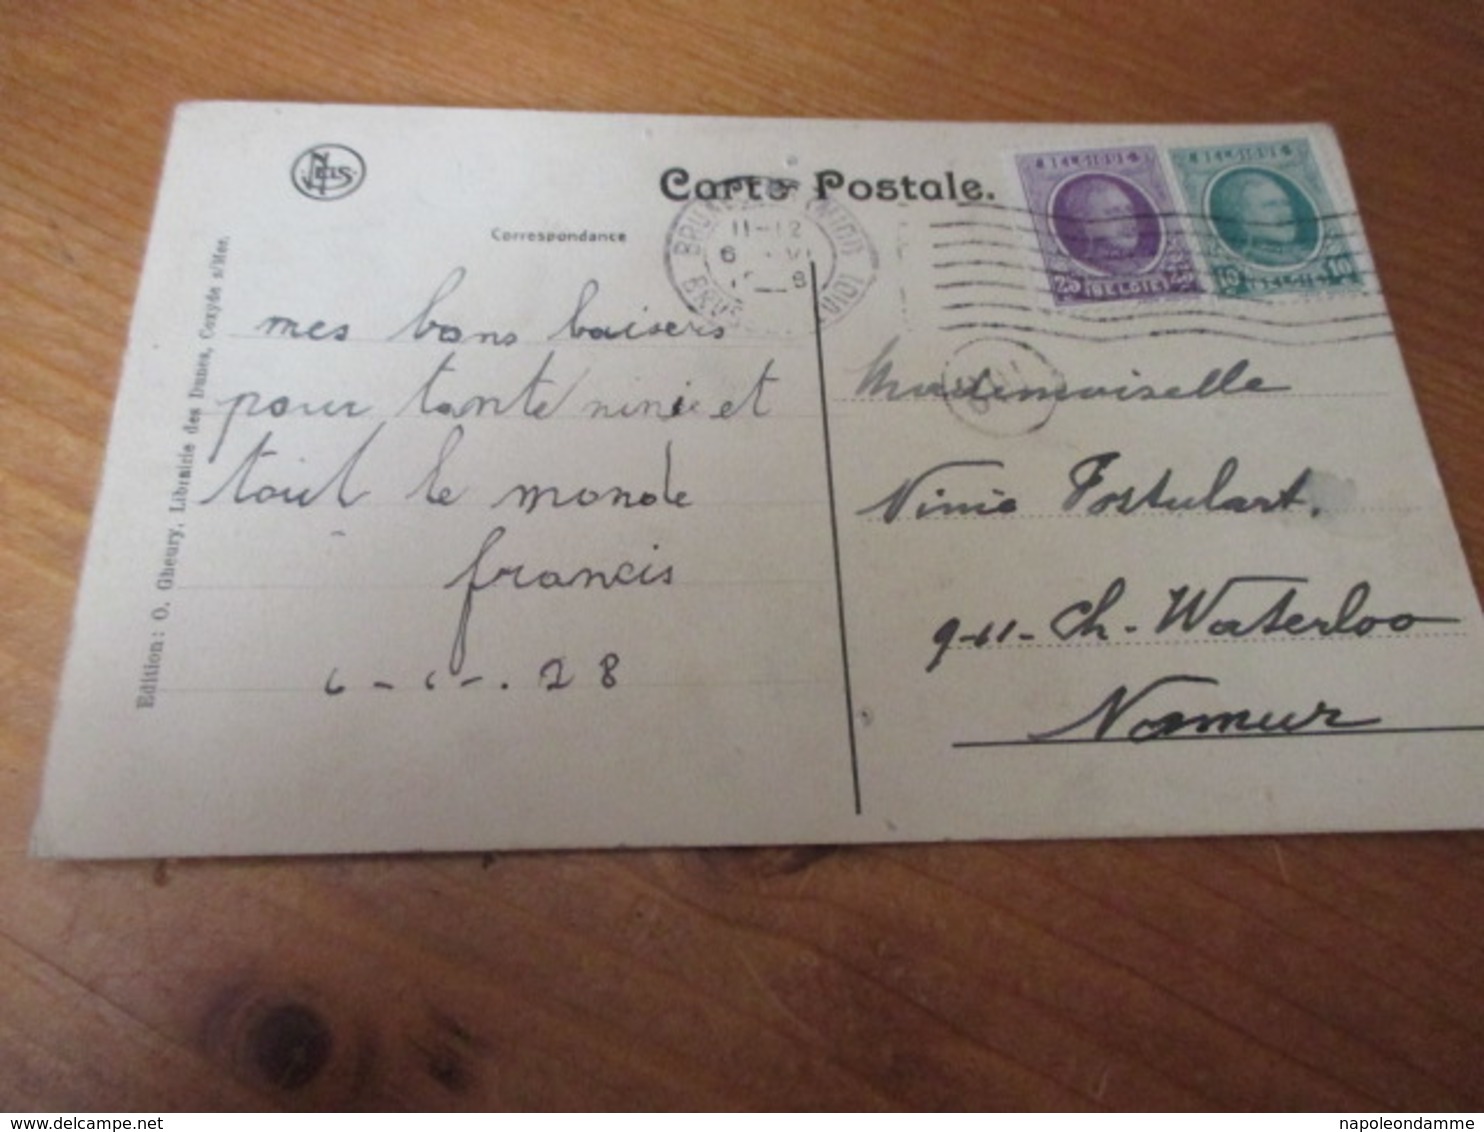 NELS
Carte Postale.
Correspondance
11-12
BELGIQUE
25 BELGIE 25
BELGIQUE
10 BELGIE 10
mes bons baisers
pour tante ninie et
tout le monde
francis
6-6-.28
Mademoiselle
Ninie Postulart.
9-11- Ch. Waterloo
Namur
Edition: O. Gheury, Librairie des Dunes, Coxyde s/Mer.
delcampe.net
napoleondamme